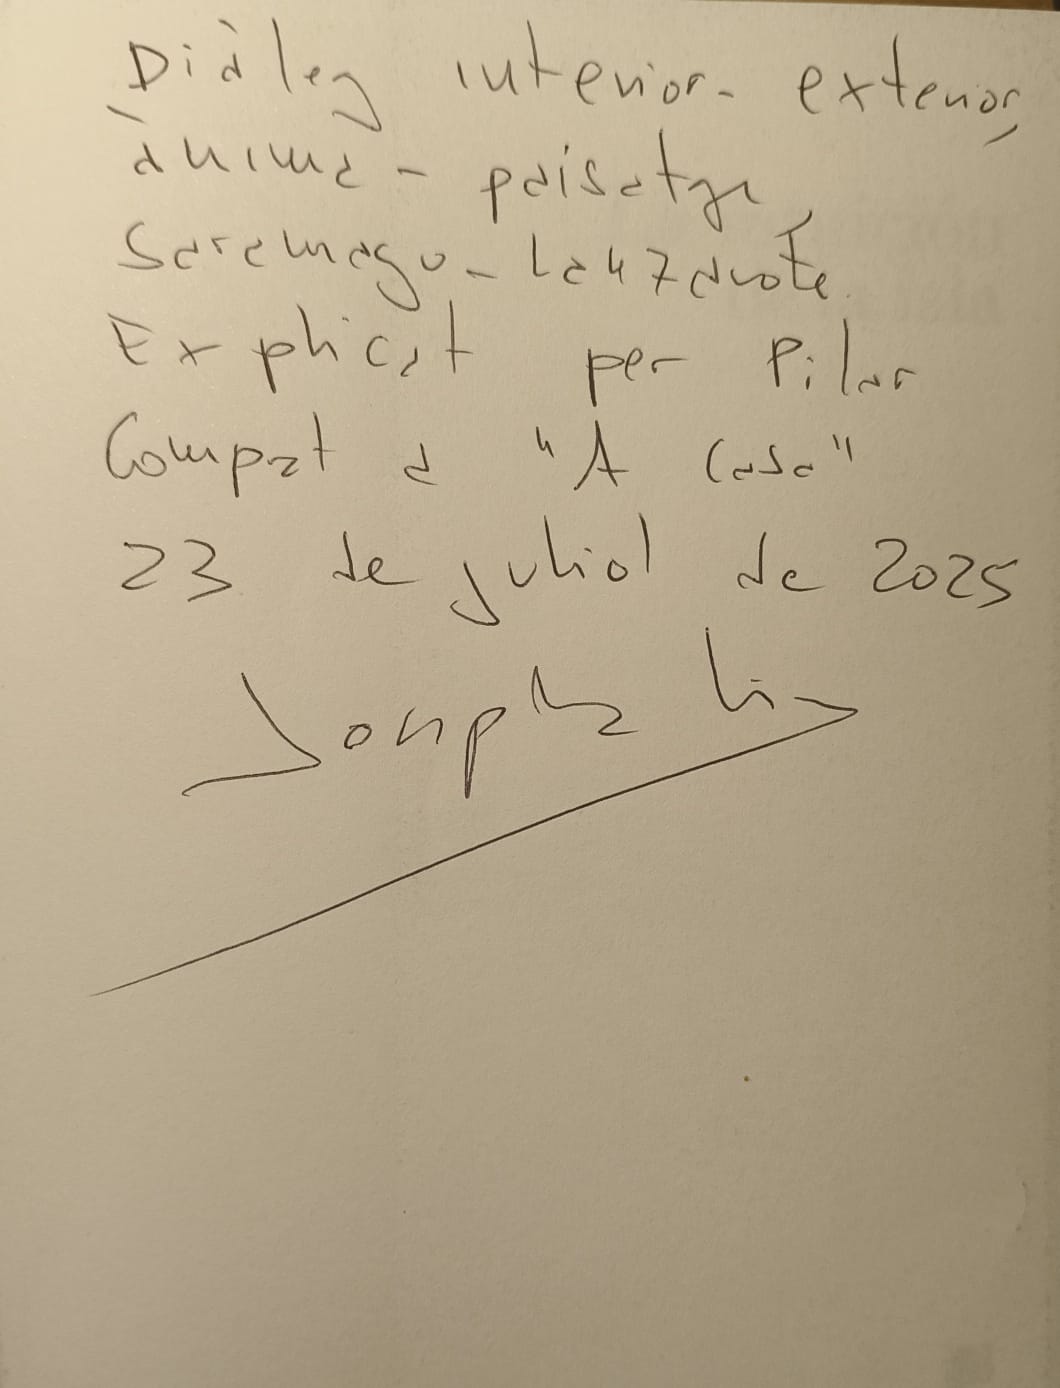 Diàleg interior-exterior,
ànima - paisatge,
Saramago - Lanzarote.
Explicat per Pilar
Comprat a "A Casa"
23 de juliol de 2025